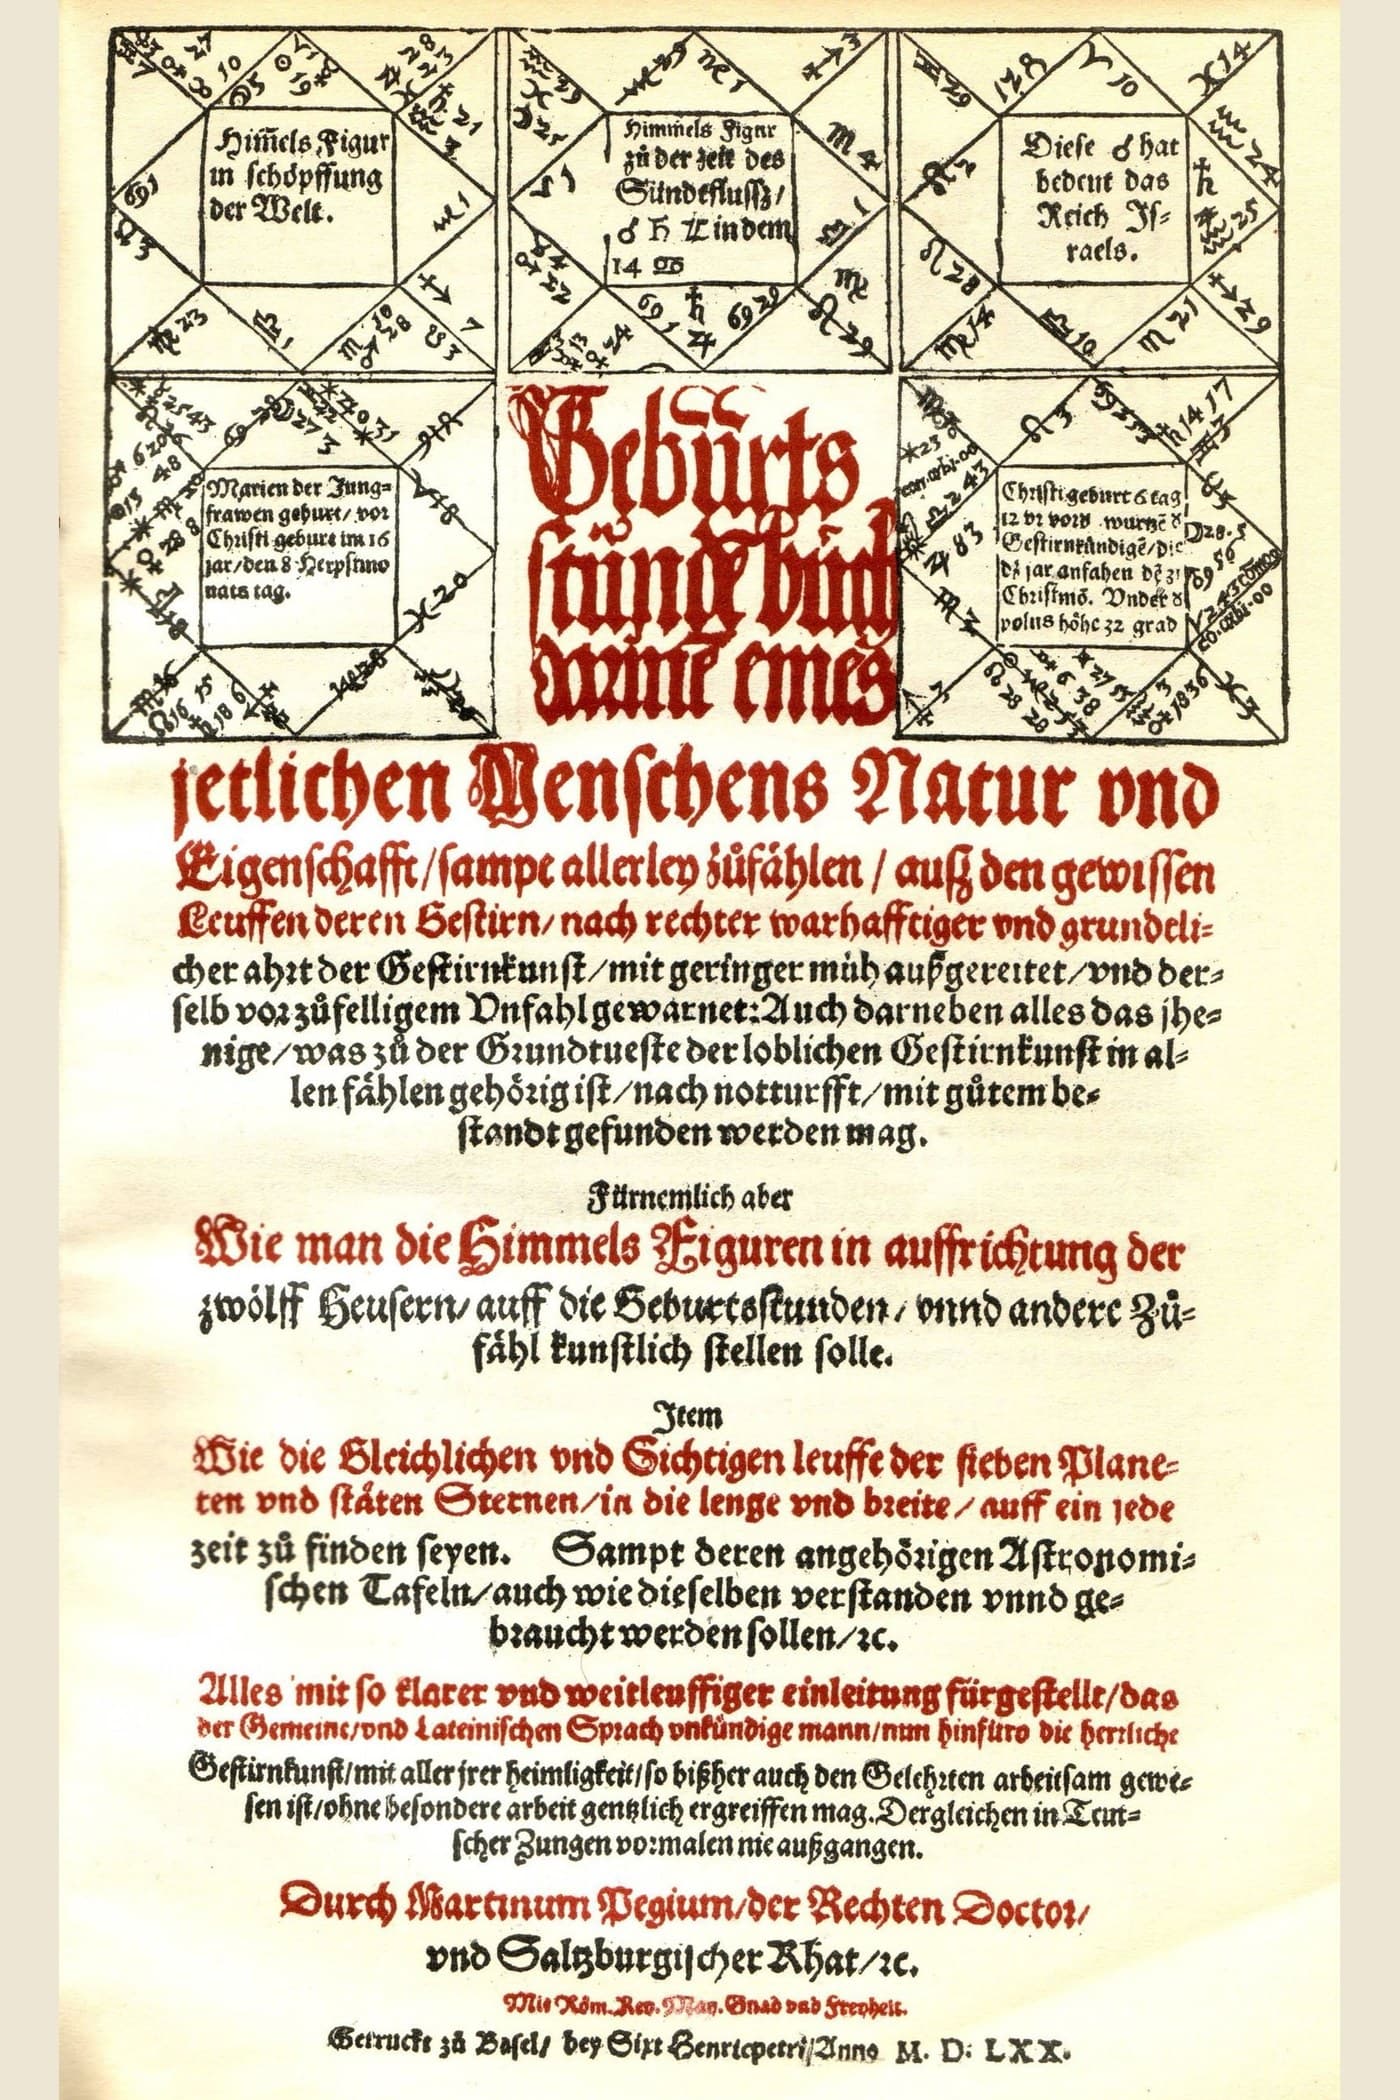 Him̃els Figur
in schöpffung
der Welt.
Himmels Figur
zů der zeit des
Sündtflussz/
♂ ♄ ♃ in dem
14 ♋
Diese ♂ hat
bedeut das
Reich Js-
raels.
Marien der Jung-
frawen geburt/ vor
Christi geburt im 16
jar/den 8 Herpstmo
nats tag.
Christi geburt 6 tag
12 vr vor
Gestirnkündigẽ/die
dz jar anfahen
Christmõ. Vnder d
polus höhe 32 grad
Gebůrts
stůnde
eines
jetlichen Menschens Natur vnd
Eigenschafft/sampt allerley zůfählen/ auß den gewissen
Leuffen deren Gestirn/ nach rechter warhafftiger vnd grundtli-
cher ahrt der Gestirnkunst/mit geringer müh außgereitet/vnd der-
selb vor zůfelligem Vnfahl gewarnet: Auch darneben alles das jhe-
nige/was zů der Grundtueste der loblichen Gestirnkunst in al-
len fählen gehörig ist/nach notturfft/mit gůtem be-
standt gefunden werden mag.
Fürnemlich aber
Wie man die Himmels Figuren in auffrichtung der
zwölff Heusern/ auff die Geburtsstunden/ vnnd andere Zů-
fähl kunstlich stellen solle.
Item
Wie die Gleichlichen vnd Sichtigen leuffe der sieben Plane-
ten vnd stäten Sternen/in die lenge vnd breite/ auff ein jede
zeit zů finden seyen. Sampt deren angehörigen Astronomi-
schen Tafeln/auch wie dieselben verstanden vnnd ge-
braucht werden sollen/ꝛc.
Alles mit so klarer vnd weitleuffiger einleitung fürgestellt/das
der Gemeine/vnd Lateinischen Sprach vnkündige mann/nun hinfüro die herrliche
Gestirnkunst/mit aller jrer heimligkeit/so bißher auch den Gelehrten arbeitsam gewe-
sen ist/ohne besondere arbeit gentzlich ergreiffen mag. Dergleichen in Teut-
scher Zungen vormalen nie außgangen.
Durch Martinum Pegium/der Rechten Doctor/
vnd Saltzburgischer Rhat/ꝛc.
Mit Röm. Key. May. Gnad vnd Freyheit.
Getruckt zů Basel/ bey Sixt Henricpetri/Anno M. D. LXX.